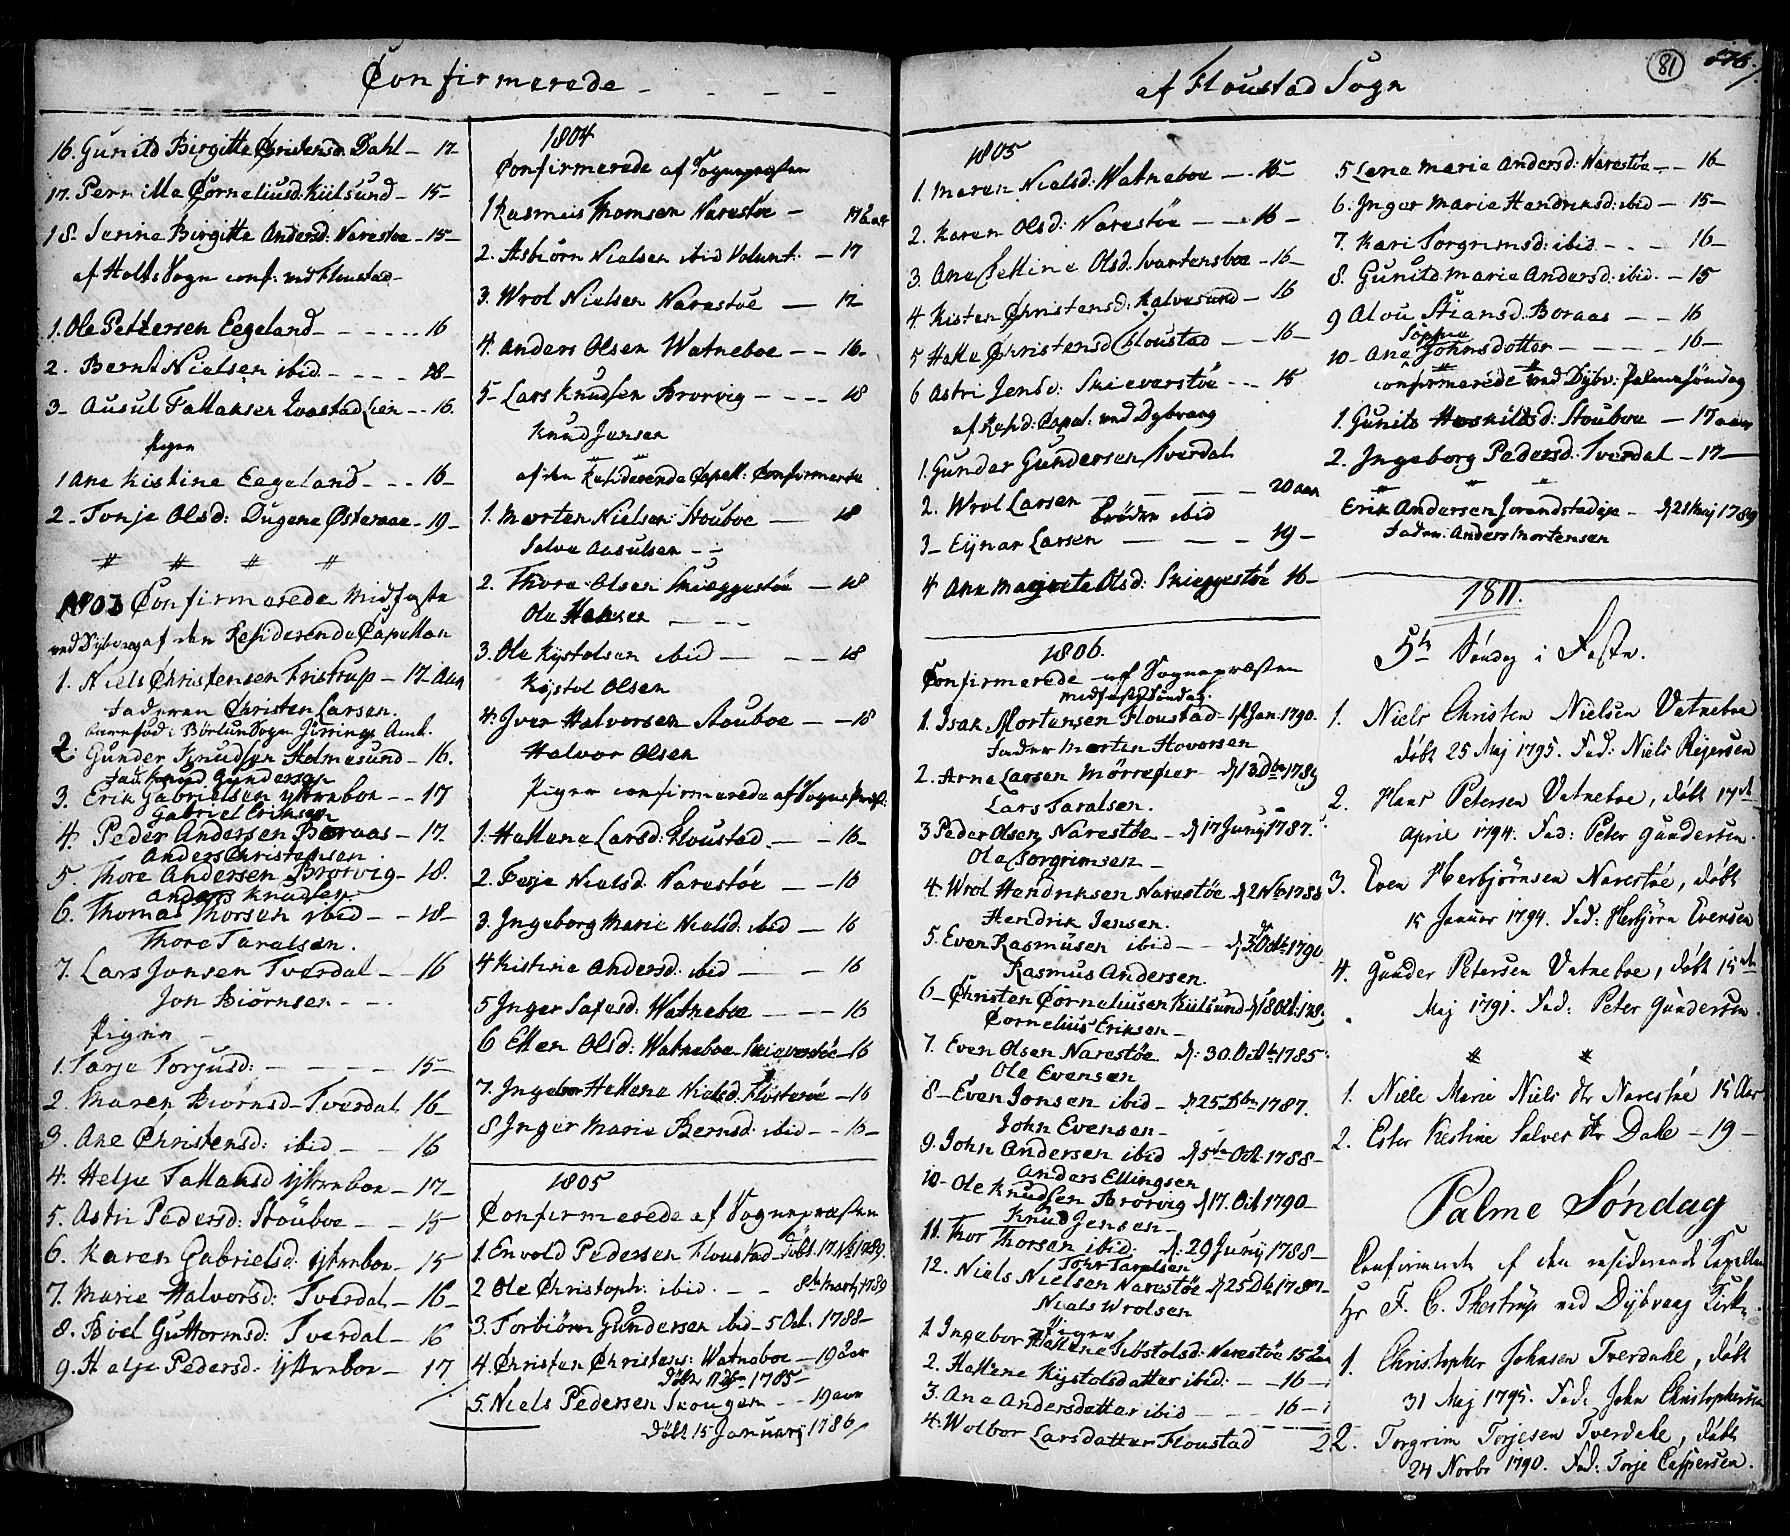 Confirmerede
16. Gunild Birgitte Christensd. Dahl - 17-
17. Pernille Corneliusd. Kiilsund - 15-
18- Serine Birgitte Andersd: Narestøe - 15-
af Holts Sogn conf: ved Floustad
1. Ole Pettersen Eegeland - 16
2. Bernt Nielsen ibid - 18-
3- Ausul Tallaksen - 16
Piger
1 Ane Kistine Eegeland - 16-
2- Tonje Olsd: Dugene Østeraae - 19-
1803 Confirmerede Midfaste
ved Dybvaag af den Residerende Capellan
1. Niels Christensen Tristrup - 17 Aar
Faderen Christen Larsen.
2. Gunder Knudsen Holmesund - 16.
Fad: Knud Gundersen
3. Erik Gabrielsen Ytternboe - 17
Gabriel Eriksen
4. Peder Andersen Boraas - 17.
Anders Christensen.
5. Thore Andersen Brorvig - 18.
Anders Knudsen
6. Thomas Thorsen ibid - 18-
Thore Taralsen.
7. Lars Jonsen Tverdal - 16
Jon Biørnsen
Piger
1. Tarje Torjusd: - 15-
2. Maren Biørnsd. Tverdal 16-
3. Ane Christensd: ibid - 16
4. Helje Tallaksd Ytternboe - 17-
5. Astri Pedersd: Stouboe - 15
6. Karen Gabrielsd: Ytternboe - 15
7. Marie Halvorsd: Tverdal - 16-
8. Boel Guttormsd: Tverdal - 16
9. Helje Pedersd: Ytternboe - 17
1804
Confirmerede af Sognepræsten
1 Rasmus Thomsen Narestøe - 17 aar
2. Asbiørn Nielsen ibid Volunt: - 17
3. Wrol Nielsen Narestøe - 17-
4. Anders Olsen Watneboe - 16-
5- Lars Knudsen Brorvig - 18
Knud Jensen
af den Residerende Capell: Confirmerte
1. Morten Nielsen Stouboe - 18
Salve Aasulsen
2. Thore Olsen Skieggestøe - 18
Ole Hansen
3. Ole Kistolsen ibid - 18
Kistol Olsen
4. Iver Halvorsen Stouboe - 18
Halvor Olsen
Piger confirmerede af Sognepræst:
1. Hallene Larsd: Floustad - 16-
2. Terje Nielsd. Narestøe - 16
3. Ingeborg Marie Nielsd: ibid - 16
4 Kistine Andersd: ibid - 16
5 Inger Safesd: Watneboe - 16
6 Ellen Olsd: Watneboe Skieverstøe - 16
7. Ingebor Hellene Nielsd. Flosterøe - 16
8 Inger Marie Bernsd: ibid - 16-
1805
Confirmerede af Sognepræsten
1. Envold Pedersen Floustad - døbt 17. Nb 1789.
2 Ole Christoph: ibid. - 8de Marty 1789
3. Torbiørn Gundersen ibid - 5 Oct. 1788-
4. Christen Christens: Watneboe - 19 aar
Døbt 11 1785-
5. Niels Pedersen Skougen - 19 aar
døbt 15 January 1786
af Floustad Sogn
81
1805
1. Maren Nielsd: Watneboe - 16-
2. Karen Olsd: Narestøe - 16-
3. Ane Olsd. - 16-
4. Kisten Christensd: Kalvesund - 16
5 Halle Christensd Floustad - 16-
6 Astri Jensd: Skieverstøe - 15
af Resid: Capel: ved Dybvaag
1. Gunder Gundersen Tverdal
2. Wrol Larsen - 20 aar
brødre ibid
3- Eynar Larsen - 19-
4 Ane Margrete Olsd: Skieggestøe 16-
1806.
Confirmerede af Sognepræsten
Midfaste Søndag.
1. Isak Mortensen Floustad - Jan: 1790.
Fader Morten Hovorsen
2. Arne Larsen Mørrefier - d 13 Dbr 1789
Lars Taralsen.
3 Peder Olsen Narestøe - d 17 Juny 1787.
Ole Torgrimsen -
4. Wrol Hendriksen Narestøe d 2 Nb 1788
Hendrik Jensen.
5. Even Rasmusen ibid - d 3 Octb 1790
Rasmus Andersen
6- Christen Corneliusen Kiilsund d 18 Oct. 1789
Cornelius Eriksen -
7. Even Olsen Narestøe d: 30. Octb 1785
Ole Evensen
8- Even Jonsen ibid - d 25 Dbr 1787.
John Evensen -
9. John Andersen ibid d 5te Oct. 1788-
Anders Ellingsen
10- Ole Knudsen Brorvig d 17. Oct 1790-
Knud Jensen -
11. Thor Thorsen ibid: d: 29 Juny 1788-
Tohr Taralsen
12. Niels Nielsen Narestøe d 25 Db 1787-
Niels Wrolsen
Piger
1. Ingebor Hellene Kistolsd: Narestøe 15 aar
2. Hallene Kistolsdatter ibid: - 16-
3. Ane Andersdatter ibid - 16-
4. Wolbor Larsdatter Floustad
5 Lene Marie Andersd: Narestøe - 16-
6. Inger Marie Hendriksd: ibid - 15-
7. Kari Torgrimsd: ibid - 16-
8. Gunild Marie Andersd: ibid. - 15
9 Alou Stiansd. Boraas - 16
10- Ane Sophia Johnsdotter - 16-
confirmerede ved Dybv: Palmesøndag
1. Gunild Haskildsd: Stouboe - 17 aar
2. Ingeborg Pedersd. Tverdal - 17-
Erik Andersen - d 21 Maj 1789
Fader: Anders Mortensen
1811.
5te Søndag i Faste.
1. Niels Christen Nielsen Vatneboe
døbt 25 Maj 1795. Fad: Niels Reiersen
2. Hans Petersen Vatneboe, døbt 17de
April 1794. Fad: Peter Gundersen.
3. Even Herbjørnsen Narestøe, døbt
15 Januar 1794. Fad: Herbjørn Evensen
4. Gunder Petersen Vatneboe, døbt 15de
Maj 1791. Fad: Peter Gundersen.
1. Niele Marie Niels dtr Narestøe 15 Aar
2. Ester Kistine Salves dtr Dale - 19-
Palme Søndag
Confirmerede af den residerende Capellan
Hr F. C. Thestrup ved Dybvaag Kirke.
1. Christopher Johnsen Tverdale, døbt
31 Maj 1795. Fad: John Christophersen
2. Torgrim Torjesen Tverdale, døbt
24 Novbr 1790. Fad: Torje Caspersen.